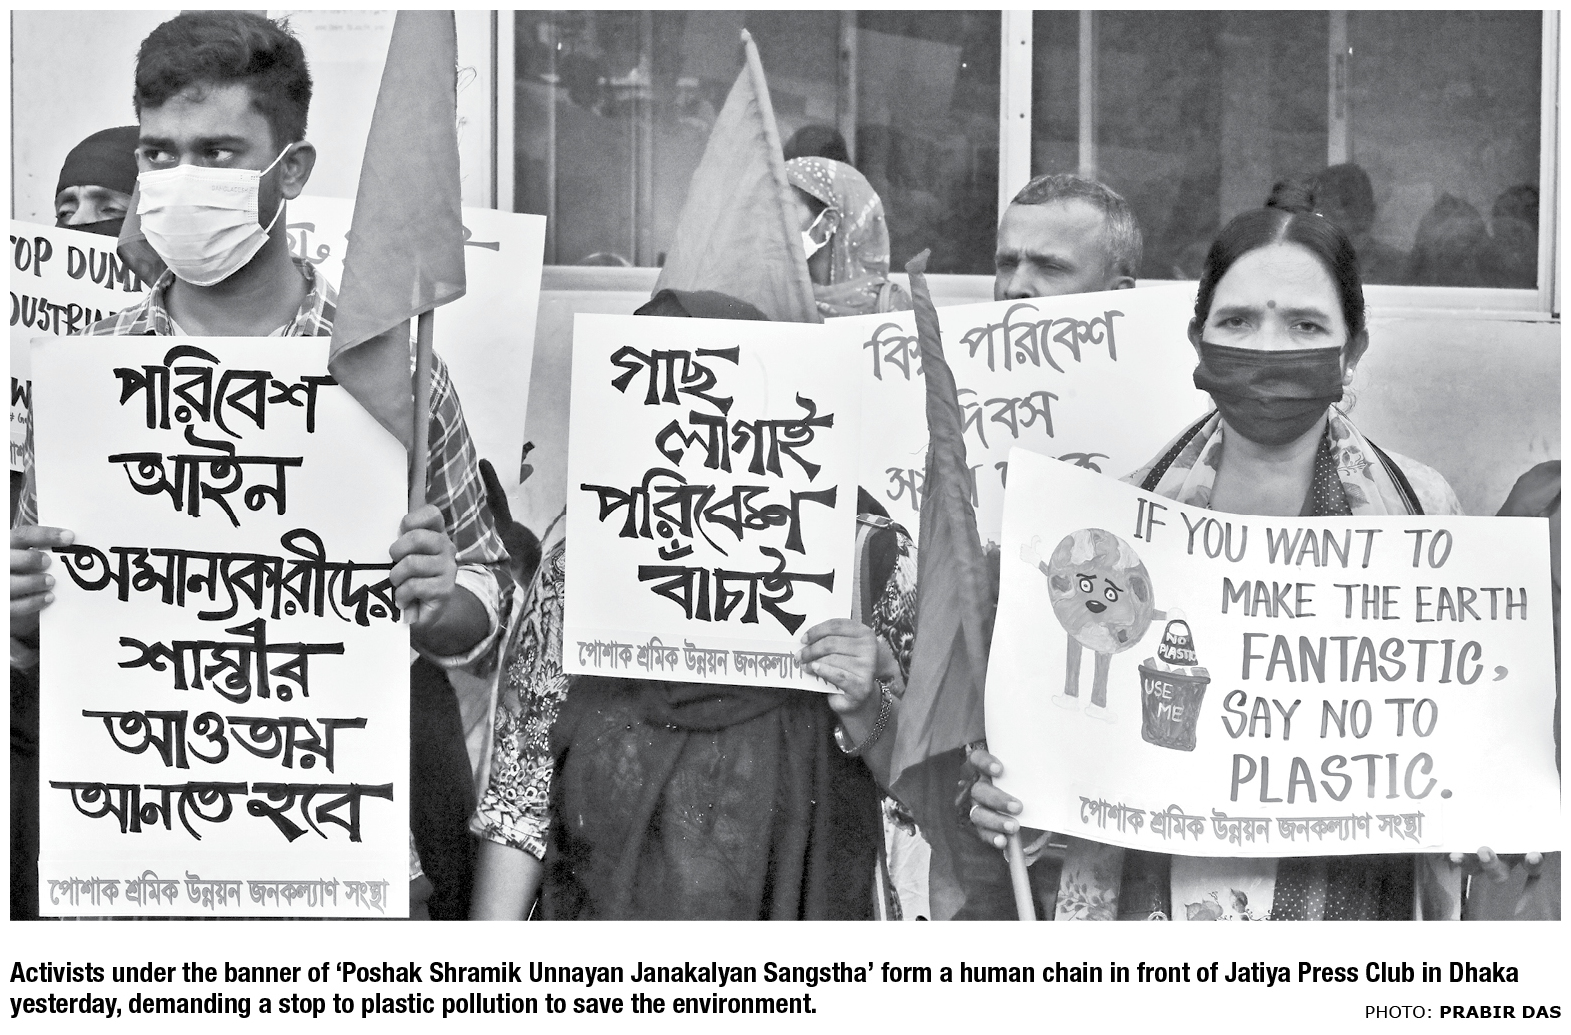 পরিবেশ
আইন
অমান্যকারীদের
শাস্তীর
আওতায়
আনতে হবে
পোশাক শ্রমিক উন্নয়ন জনকল্যাণ সংস্থা
গাছ
লাগাই
পরিবেশ
বাঁচাই
পোশাক শ্রমিক উন্নয়ন জনকল্যাণ
পরিবেশ
দিবস
IF YOU WANT TO
MAKE THE EARTH
FANTASTIC,
SAY NO TO
PLASTIC.
NO
PLASTIC
USE
ME
পোশাক শ্রমিক উন্নয়ন জনকল্যাণ সংস্থা
Activists under the banner of ‘Poshak Shramik Unnayan Janakalyan Sangstha’ form a human chain in front of Jatiya Press Club in Dhaka
yesterday, demanding a stop to plastic pollution to save the environment.
PHOTO: PRABIR DAS